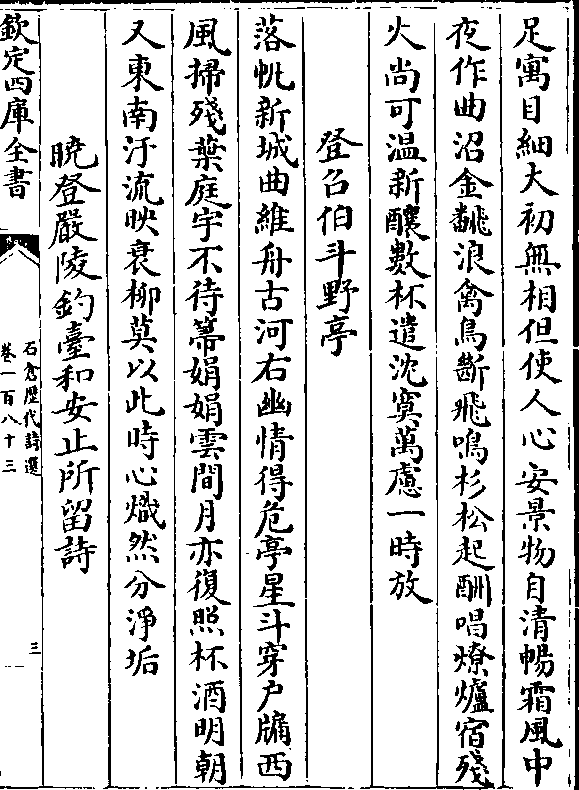 足寓目細大初無相但使人心安景物自清暢霜風中
夜作曲沼金飜浪禽鳥斷飛鳴杉松起酬唱燎爐宿殘
火尚可温新釀數杯遣沈寞萬慮一時放
登召伯斗野亭
落帆新城曲維舟古河右幽情得危亭星斗穿户牖西
風掃殘葉庭宇不待箒娟娟雲間月亦復照杯酒明朝
又東南汙流映衰柳莫以此時心熾然分淨垢
曉登嚴陵釣臺和安止所留詩
欽定四庫全書
石倉歴代詩選
卷一百八十三
三